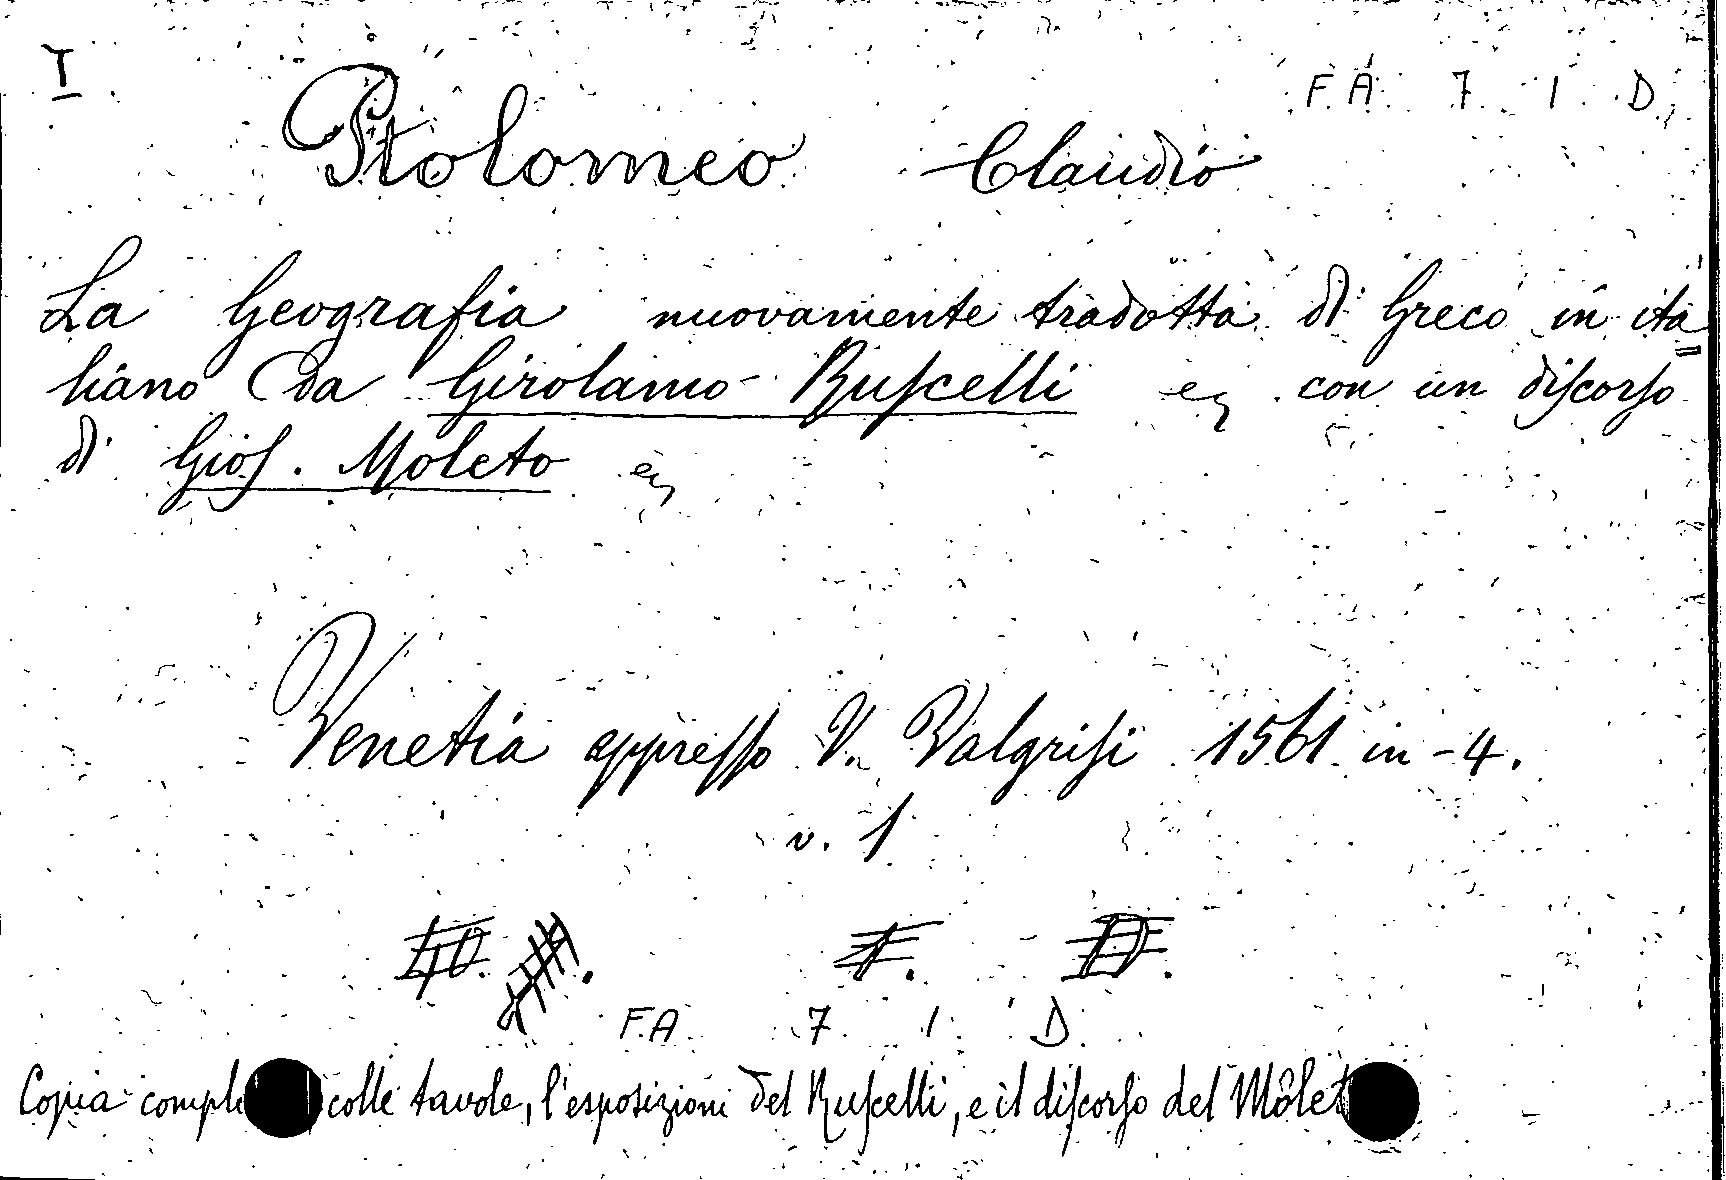 I F. A. 7 1 D
Ptolomeo Claudio
La Geografia nuovamente tradotta di Greco in ita=
liano da Girolamo Ruscelli ec, con un discorso
di Gios. Moleto ec,
Venetia appresso V. Valgrisi 1561 in-4.
v. 1
F.A 7 1 D
Copia comple colle tavole, l'esposizioni del Ruscelli, e il discorso del Molet